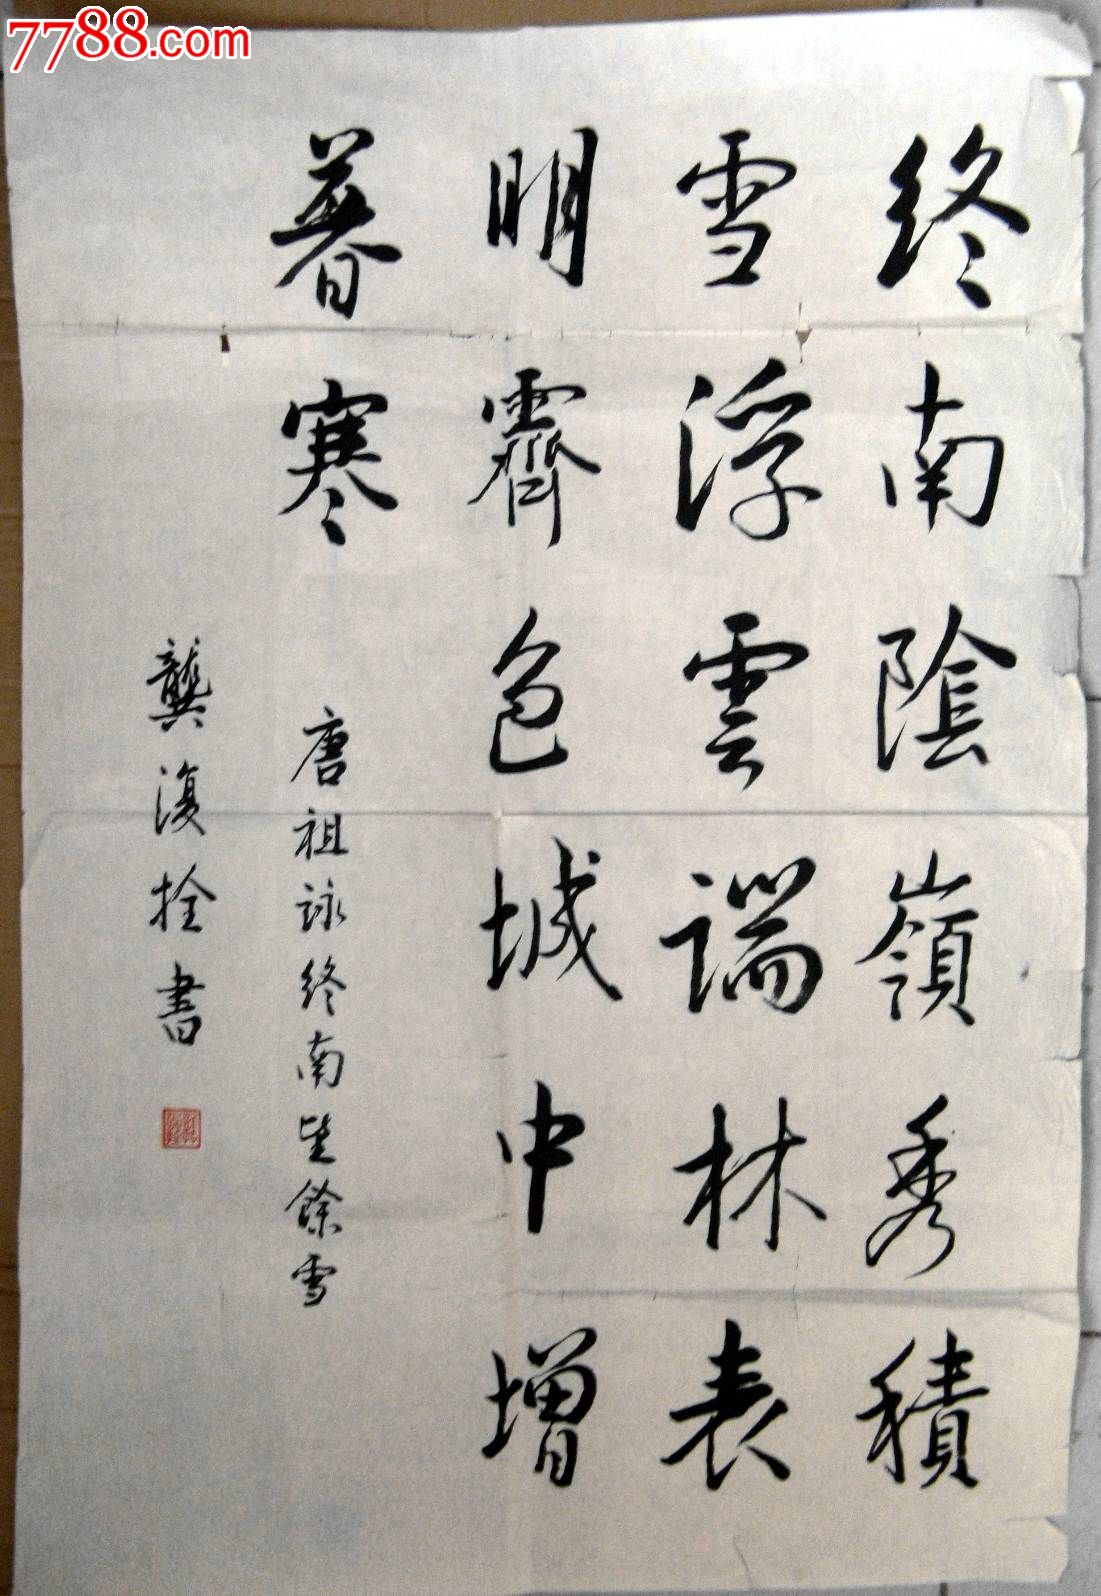 7788.com
終南陰嶺秀積
雪浮雲端林表
明霽色城中增
暮寒
唐祖詠終南望餘雪
龔復拴書